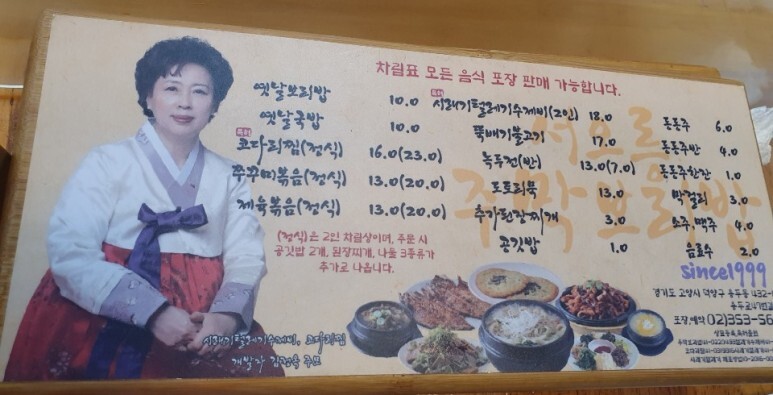 차림표 모든 음식 포장 판매 가능합니다.
옛날보리밥 10.0
옛날국밥 10.0
특허
코다리찜(정식) 16.0(23.0)
쭈꾸미볶음(정식) 13.0(20.0)
제육볶음(정식) 13.0(20.0)
(정식)은 2인 차림상이며, 주문 시
공깃밥 2개, 된장찌개, 나물 3종류가
추가로 나옵니다.
특허
시래기털레기수제비(2인) 18.0
뚝배기불고기 17.0
녹두전(반) 13.0(7.0)
도토리묵 13.0
추가된장찌개 3.0
공깃밥 1.0
동동주 6.0
동동주반 4.0
동동주한잔 1.0
막걸리 3.0
소주,맥주 4.0
음료수 2.0
서오릉
주막보리밥
since1999
경기도 고양시 덕양구 용두동 432-
포장,예약 02)353-56
상표등록,특허출원
시래기털레기수제비, 코다리찜
개발자